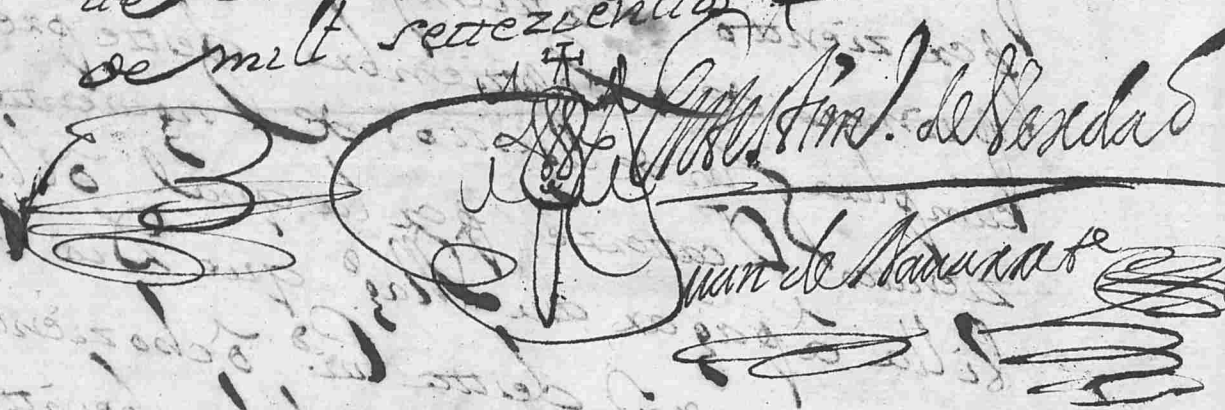 de
de mill settezientos
En testim.o de Verdad
Juan de Navarrete